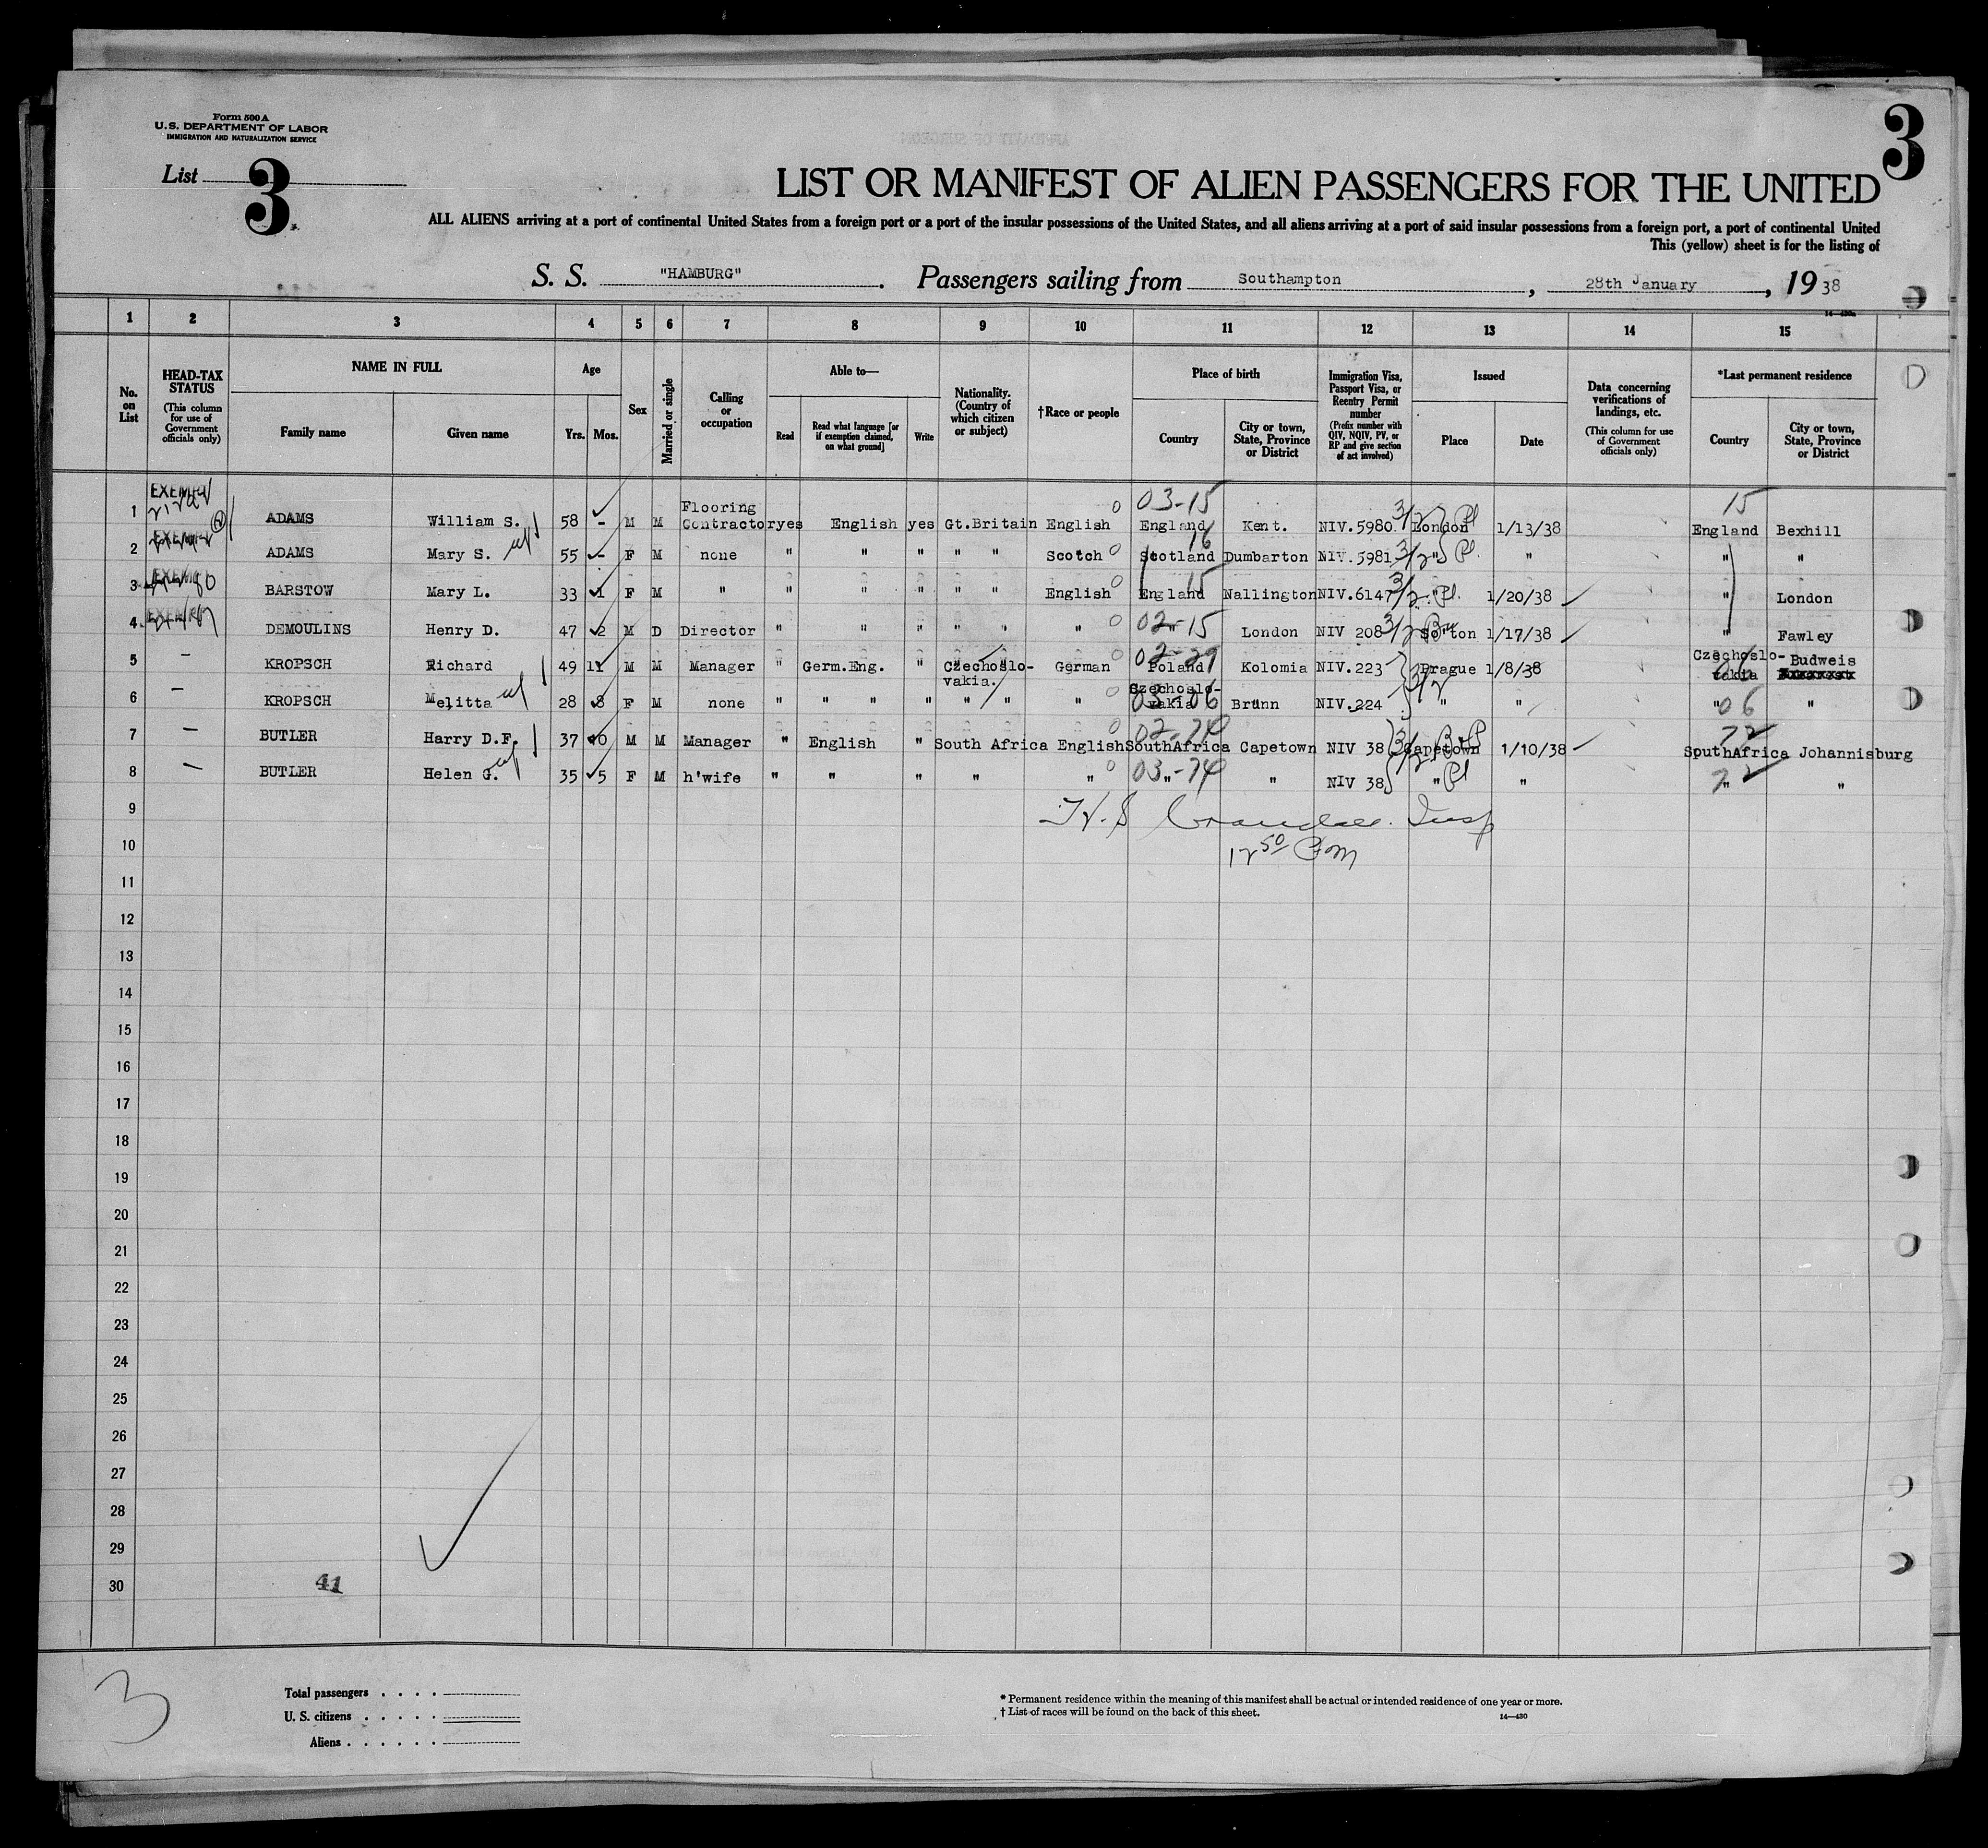 Form 500 A
U.S. DEPARTMENT OF LABOR
IMMIGRATION AND NATURALIZATION SERVICE
3
List 3
LIST OR MANIFEST OF ALIEN PASSENGERS FOR THE UNITED
ALL ALIENS arriving at a port of continental United States from a foreign port or a port of the insular possessions of the United States, and all aliens arriving at a port of said insular possessions from a foreign port, a port of continental United
This (yellow) sheet is for the listing of
S. S. "HAMBURG" . Passengers sailing from Southampton , 28th January , 1938
1 2 3 4 5 6 7 8 9 10 11 12 13 14 15
No. on List
HEAD-TAX STATUS (This column for use of Government officials only)
NAME IN FULL
Family name Given name
Age
Yrs. Mos.
Sex
Married or single
Calling or occupation
Able to—
Read Read what language [or if exemption claimed, on what ground] Write
Nationality. (Country of which citizen or subject)
†Race or people
Place of birth
Country City or town, State, Province or District
Immigration Visa, Passport Visa, or Reentry Permit number (Prefix number with QIV, NQIV, PV, or RP and give section of act involved)
Issued
Place Date
Data concerning verifications of landings, etc. (This column for use of Government officials only)
*Last permanent residence
Country City or town, State, Province or District
1 EXEMPT ADAMS William S. 58 - M M Flooring Contractor yes English yes Gt.Britain English 03-15 England Kent. NIV.5980 3/2 London Pl 1/13/38 15 England Bexhill
2 EXEMPT ADAMS Mary S. 55 - F M none " " " " " Scotch 16 Scotland Dumbarton NIV.5981 3/2 " Pl. " " "
3 EXEMPT BARSTOW Mary L. 33 1 F M " " " " " " English 15 England Wallington NIV.6147 3/2 " Pl. 1/20/38 " London
4 EXEMPT DEMOULINS Henry D. 47 2 M D Director " " " " " " 02-15 " London NIV 208 3/2 So'ton 1/17/38 " Fawley
5 - KROPSCH Richard 49 11 M M Manager " Germ.Eng. " Czechoslo-vakia. German 02-29 Poland Kolomia NIV.223 Prague 1/8/38 Czechoslo-vakia 06 Budweis
6 - KROPSCH Melitta 28 8 F M none " " " " " " " 03-06 Czechoslo-vakia Brünn NIV.224 3/2 " " " 06 "
7 - BUTLER Harry D.F. 37 10 M M Manager " English " South Africa English 02-74 SouthAfrica Capetown NIV 38 3/2 Capetown 1/10/38 72 SouthAfrica Johannisburg
8 - BUTLER Helen G. 35 5 F M h'wife " " " " " 03-74 " " NIV 38 " Pl " 72 " "
9 H.S Crandall. Insp
10 12 50 Pm
11
12
13
14
15
16
17
18
19
20
21
22
23
24
25
26
27
28
29
30 41
3
Total passengers . . . .
U. S. citizens . . . . .
Aliens . . . . . .
* Permanent residence within the meaning of this manifest shall be actual or intended residence of one year or more.
† List of races will be found on the back of this sheet.
14—430